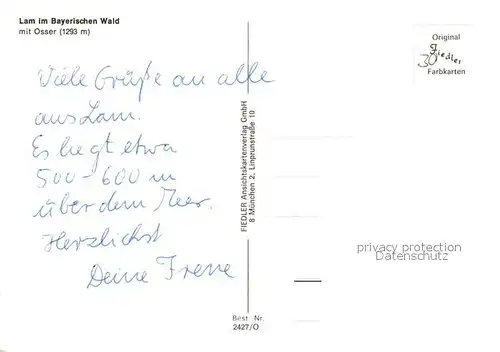 Lam im Bayerischen Wald
mit Osser (1293 m)
Viele Grüße an alle
aus Lam.
Es liegt etwa
500-600 m
über dem Meer.
Herzlichst
Deine Irene
FIEDLER Ansichtskartenverlag GmbH
8 München 2, Linprunstraße 10
Best Nr.
2427/O
Original
Fiedler
Farbkarten
privacy protection
Datenschutz